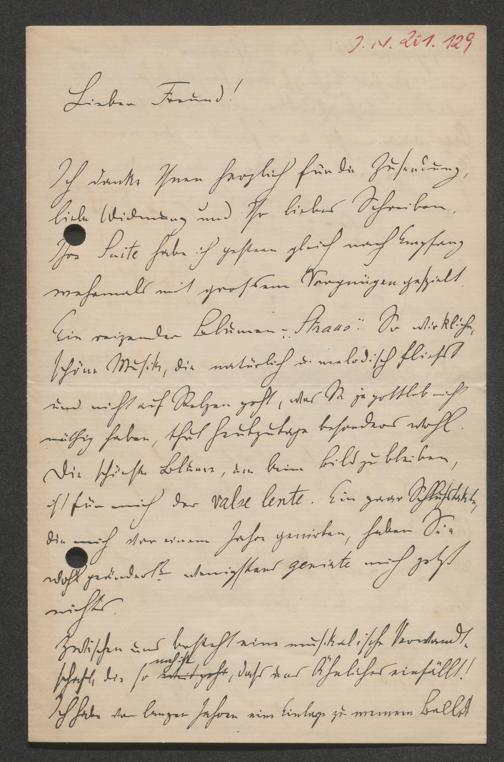 J. N. 201. 129
Lieber Freund!
Ich danke Ihnen herzlich für die Zusendung,
liebe Widmung und Ihr liebes Schreiben.
Ihre Suite habe ich gestern gleich nach Empfang
mehrmals mit großem Vergnügen gespielt.
Ein reizender Blumen-„Strauss“! So wirklich,
schöne Musik, die natürlich u. melodisch fliesst
und nicht auf Stelzen geht, was Sie ja gottlob nicht
nöthig haben, thut heutzutage besonders wohl.
Die schönste Blume, um beim Bild zu bleiben,
ist für mich der valse lente. Ein paar Schlußtakte,
die mich vor einem Jahre genirten, haben Sie
wohl geändert? wenigstens genirte mich jetzt
nichts.
Zwischen uns besteht eine musikalische Verwandt-
schaft, die so nah ist, dass uns Ähnliches einfällt!
Ich habe vor langen Jahren eine Einlage zu meinem Ballet